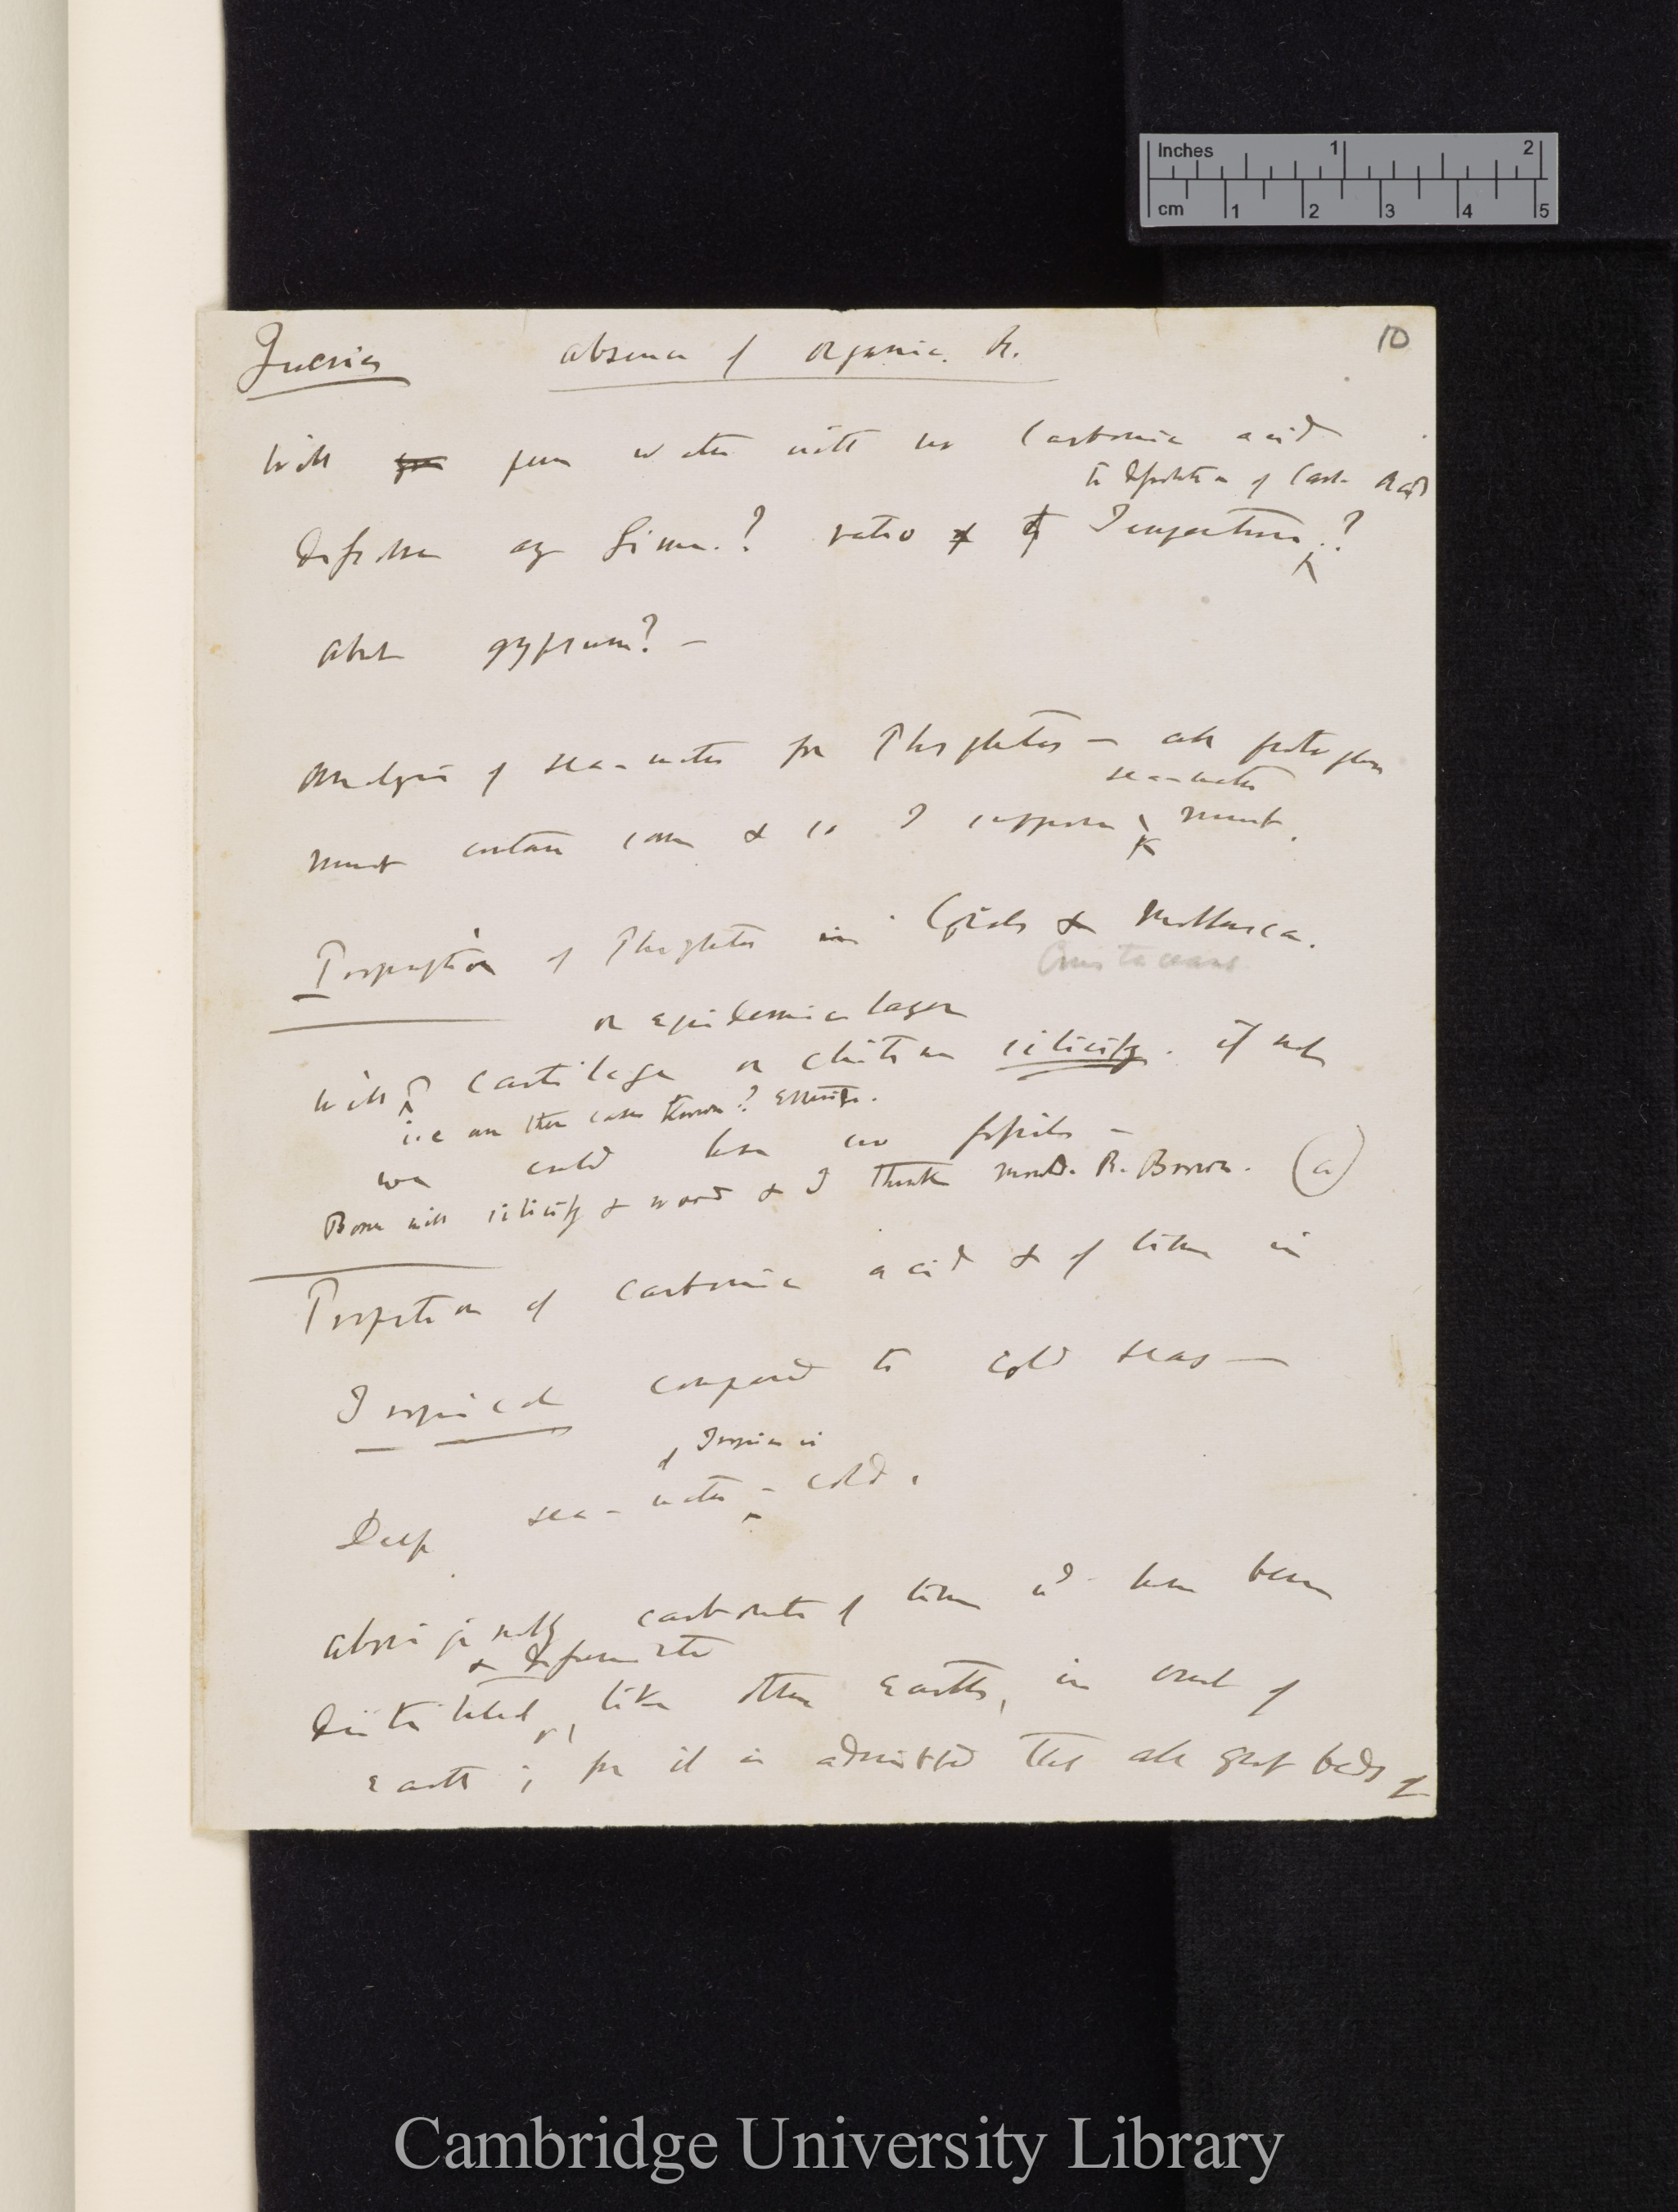 Inches 1 2
cm 1 2 3 4 5
10
Queries absence of organic. R.
Will pure water with no Carbonic acid
to of Carb. Acid
any Lime.? ratio of Temperature.?
about gypsum? —
Analysis of sea-water for Phosphates — all
sea-water
must contain some & so I suppose must.
Proportion of Phosphates in Corals & Mollusca.
Crustaceans
or epidermic layer
Will cartilage or chitine silicify. if not
i.e are there cases known?
we could have no fossils —
Bone will silicify & wood & I think R. Brown. (a)
Proportion of carbonic acid & of lime in
Tropical compared to cold seas —
of Tropics is
Deep sea-water — cold.
Aboriginally carbonate of lime wd have been
&
distributed, like other earths, in crust of
earth; for it is admitted that all great beds of
Cambridge University Library